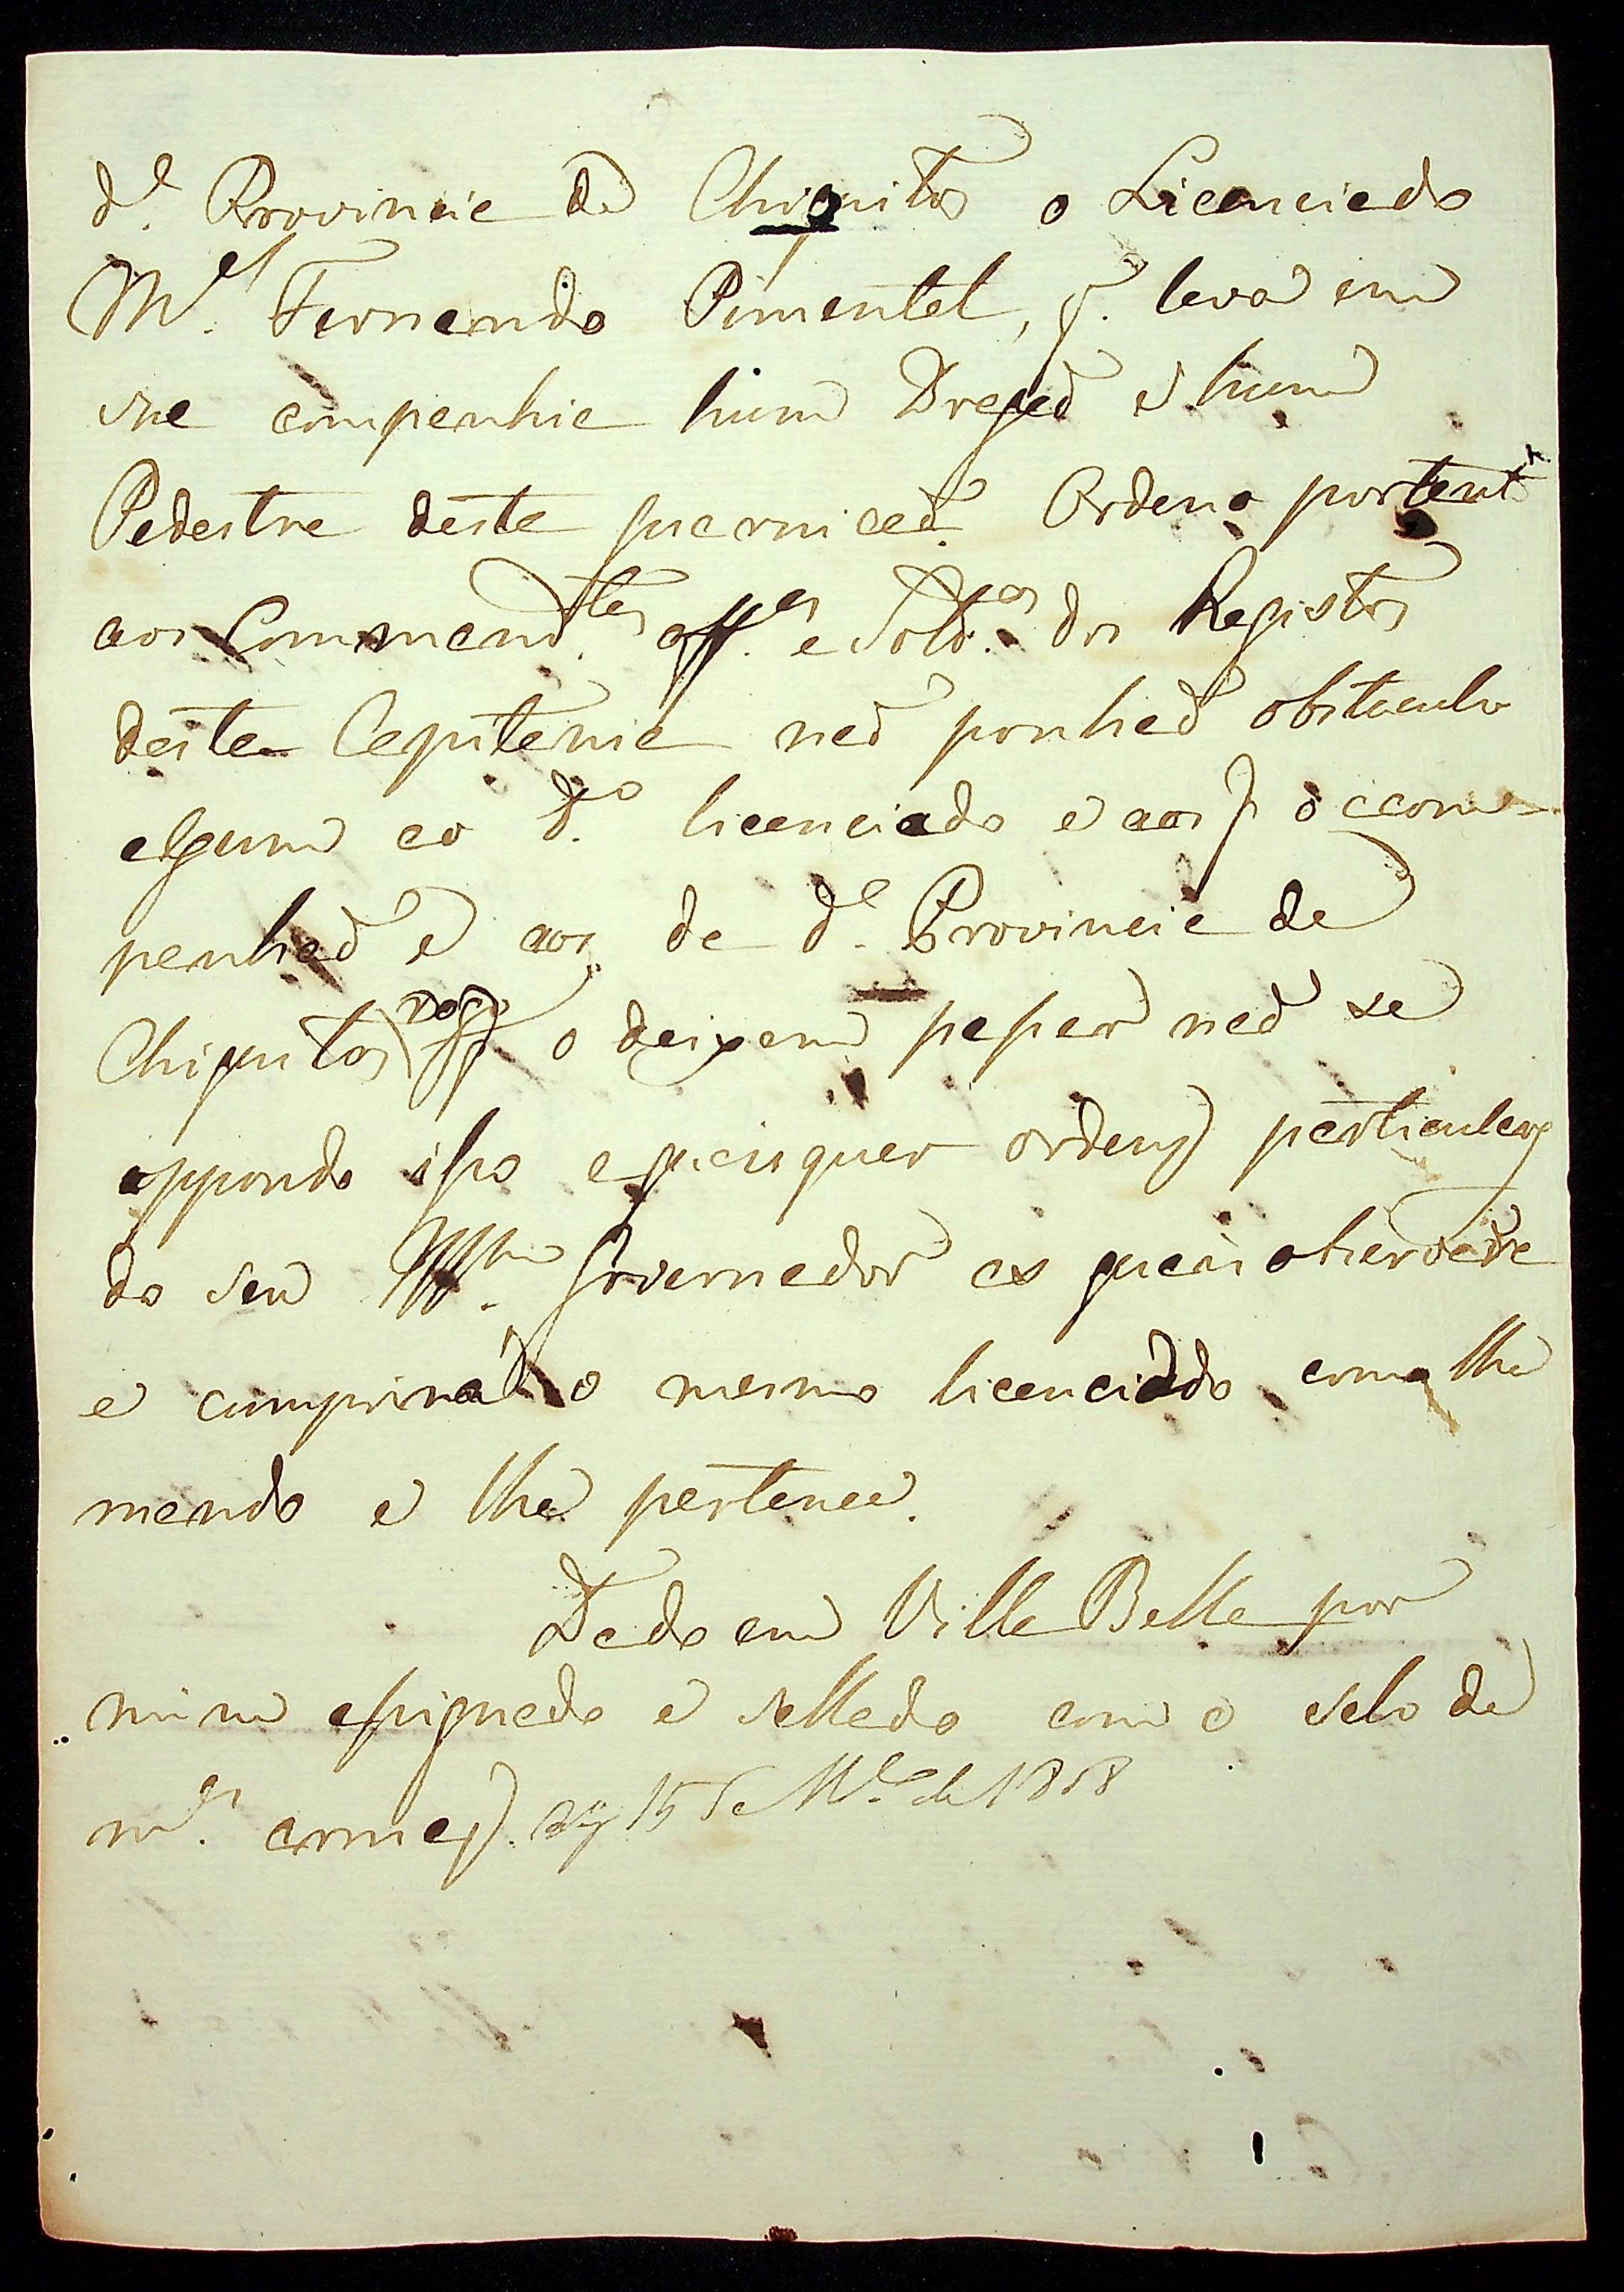 d.ª Provincia de Chiquitos o Licenciado
M.el Fernando Pimentel, q. leva em
sua companhia hum Dragaõ e hum
Pedestre desta guarniçaõ. Ordeno portant.º
aos Command.tes off.es e Sold.os dos Registos
desta Capitania naõ ponhaõ obstaculo
algum ao d.º licenciado e aos q o acom-
panhaõ e aos da d.ª Provincia de
Chiquitos rogo q o deixem passar naõ se
oppondo isso a quaisquer ordens particulares
do seu Ill.mo Governador as quais observará
e cumprirá o mesmo licenciado como lhe
mando e lhe pertence.
Dado em Villa Bella por
mim assignado e sellado com o selo de
m.as armas. aos 15 de M.ço de 1818